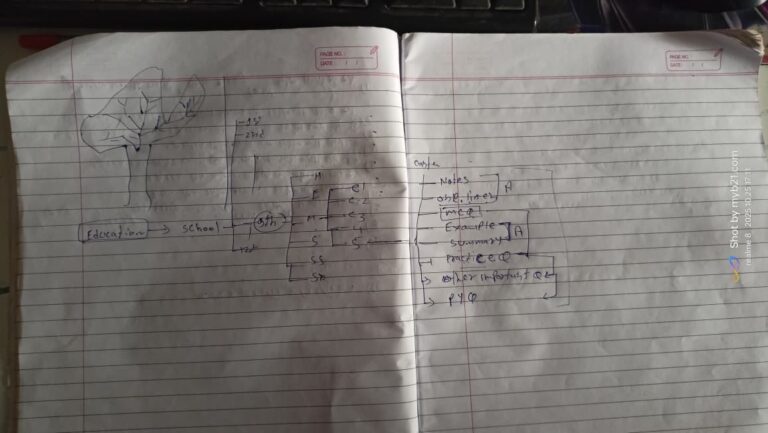 PAGE NO. :
DATE : / /
PAGE NO. :
DATE : / /
1st
2nd
Education → School
9th
12th
H
E
M
S
SS
SN
C1
C2
C3
C4
5
Notes
A
one liner
MCQ
Example
A
Summary
Practice Q
other important Q
PYQ
Shot by myb21.com
realme 8 2025.10.25 17:11